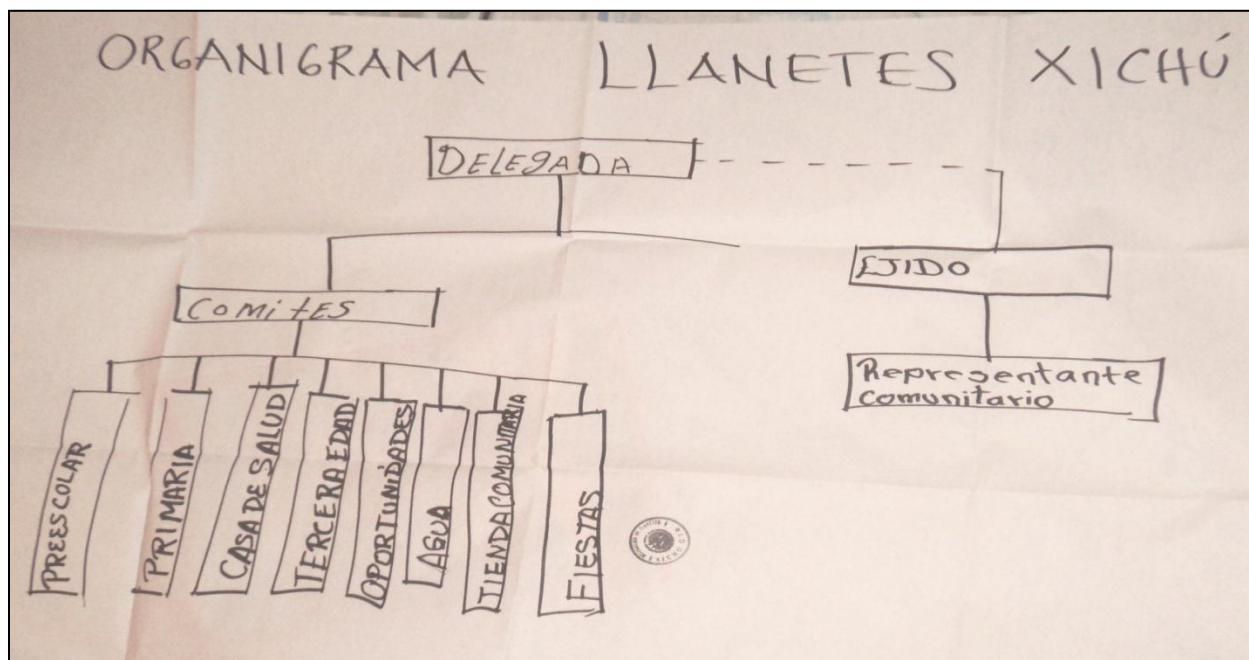 ORGANIGRAMA LLANETES XICHÚ
DELEGADA
EJIDO
ComitES
Representante
comunitario
PREESCOLAR
PRIMARIA
CASA DE SALUD
TERCERA EDAD
OPORTUNIDADES
AGUA
TIENDA COMUNITARIA
FIESTAS